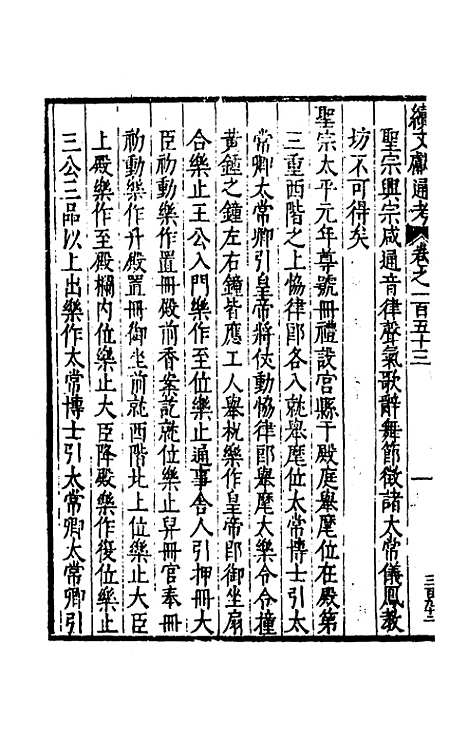 續文獻通考 卷之一百五十三 一 三百九十三
聖宗興宗咸通音律聲氣歌辭舞節徵諸太常儀鳳教
坊不可得矣
聖宗太平元年尊號冊禮設宮縣于殿庭舉麾位在殿第
三重西階之上協律郎各入就舉麾位太常博士引太
常卿太常卿引皇帝將仗動協律郎舉麾太樂令令撞
黃鍾之鐘左右鐘皆應工人舉柷樂作皇帝即御坐扇
合樂止王公入門樂作至位樂止通事舍人引押冊大
臣初動樂作置冊殿前香案訖就位樂止舁冊官奉冊
初動樂作升殿置冊御坐前就西階北上位樂止大臣
上殿樂作至殿欄內位樂止大臣降殿樂作復位樂止
三公三品以上出樂作太常博士引太常卿太常卿引